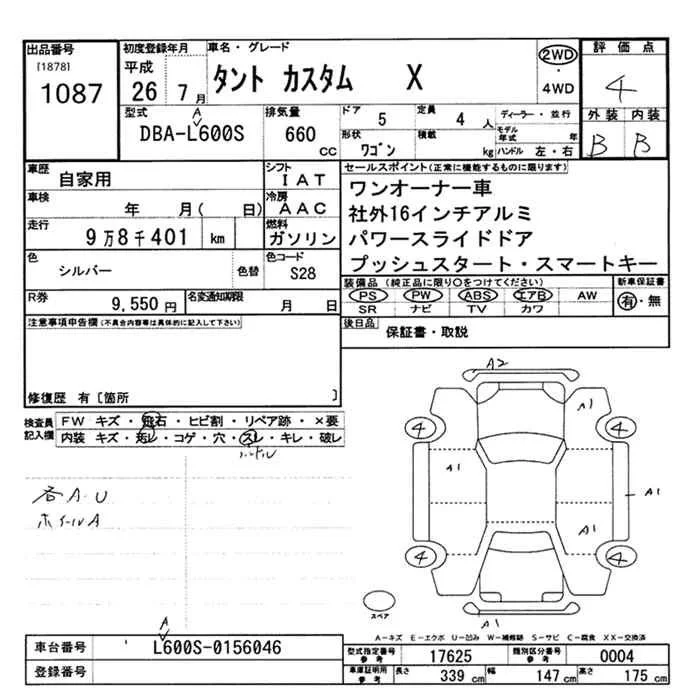 出品番号
[1878]
1087
初度登録年月
平成
26 7月
車名・グレード
タント カスタム X
2WD
・
4WD
評価点
4
外装 内装
B B
型式
A
DBA-L600S
排気量
660
CC
ドア
5
定員
4 人
形状
ワゴン
積載
kg
ディーラー・並行
モデル年式 年
ハンドル 左・右
車歴
自家用
シフト
IAT
車検
年 月( 日)
冷房
AAC
走行
9万8千401 km
燃料
ガソリン
色
シルバー
色替
色コード
S28
R券
9,550円
名変通知期限
月 日
セールスポイント(正常に機能するものに限ります)
ワンオーナー車
社外16インチアルミ
パワースライドドア
プッシュスタート・スマートキー
装備品(純正品に限り○をつけてください)
PS PW ABS エアB AW
SR ナビ TV カワ
新車保証書
有・無
後日品
保証書・取説
注意事項申告欄(不具合内容等は具体的に記入して下さい)
修復歴 有[箇所 ]
検査員
記入欄
FW キズ・飛石・ヒビ割・リペア跡・×要
内装 キズ・汚レ・コゲ・穴・スレ・キレ・破レ
ハンドル
各A・U
ホイールA
A2
A1
4 4
A1
A1
A1
4 4
A1
スペア
A－キズ E－エクボ U－凹み W－補修跡 S－サビ C－腐食 XX－交換済
車台番号
A
L600S-0156046
登録番号
型式指定番号
参考
17625
類別区分番号
参考
0004
車庫証明用
参考
長さ 339 cm
幅 147 cm
高さ 175 cm